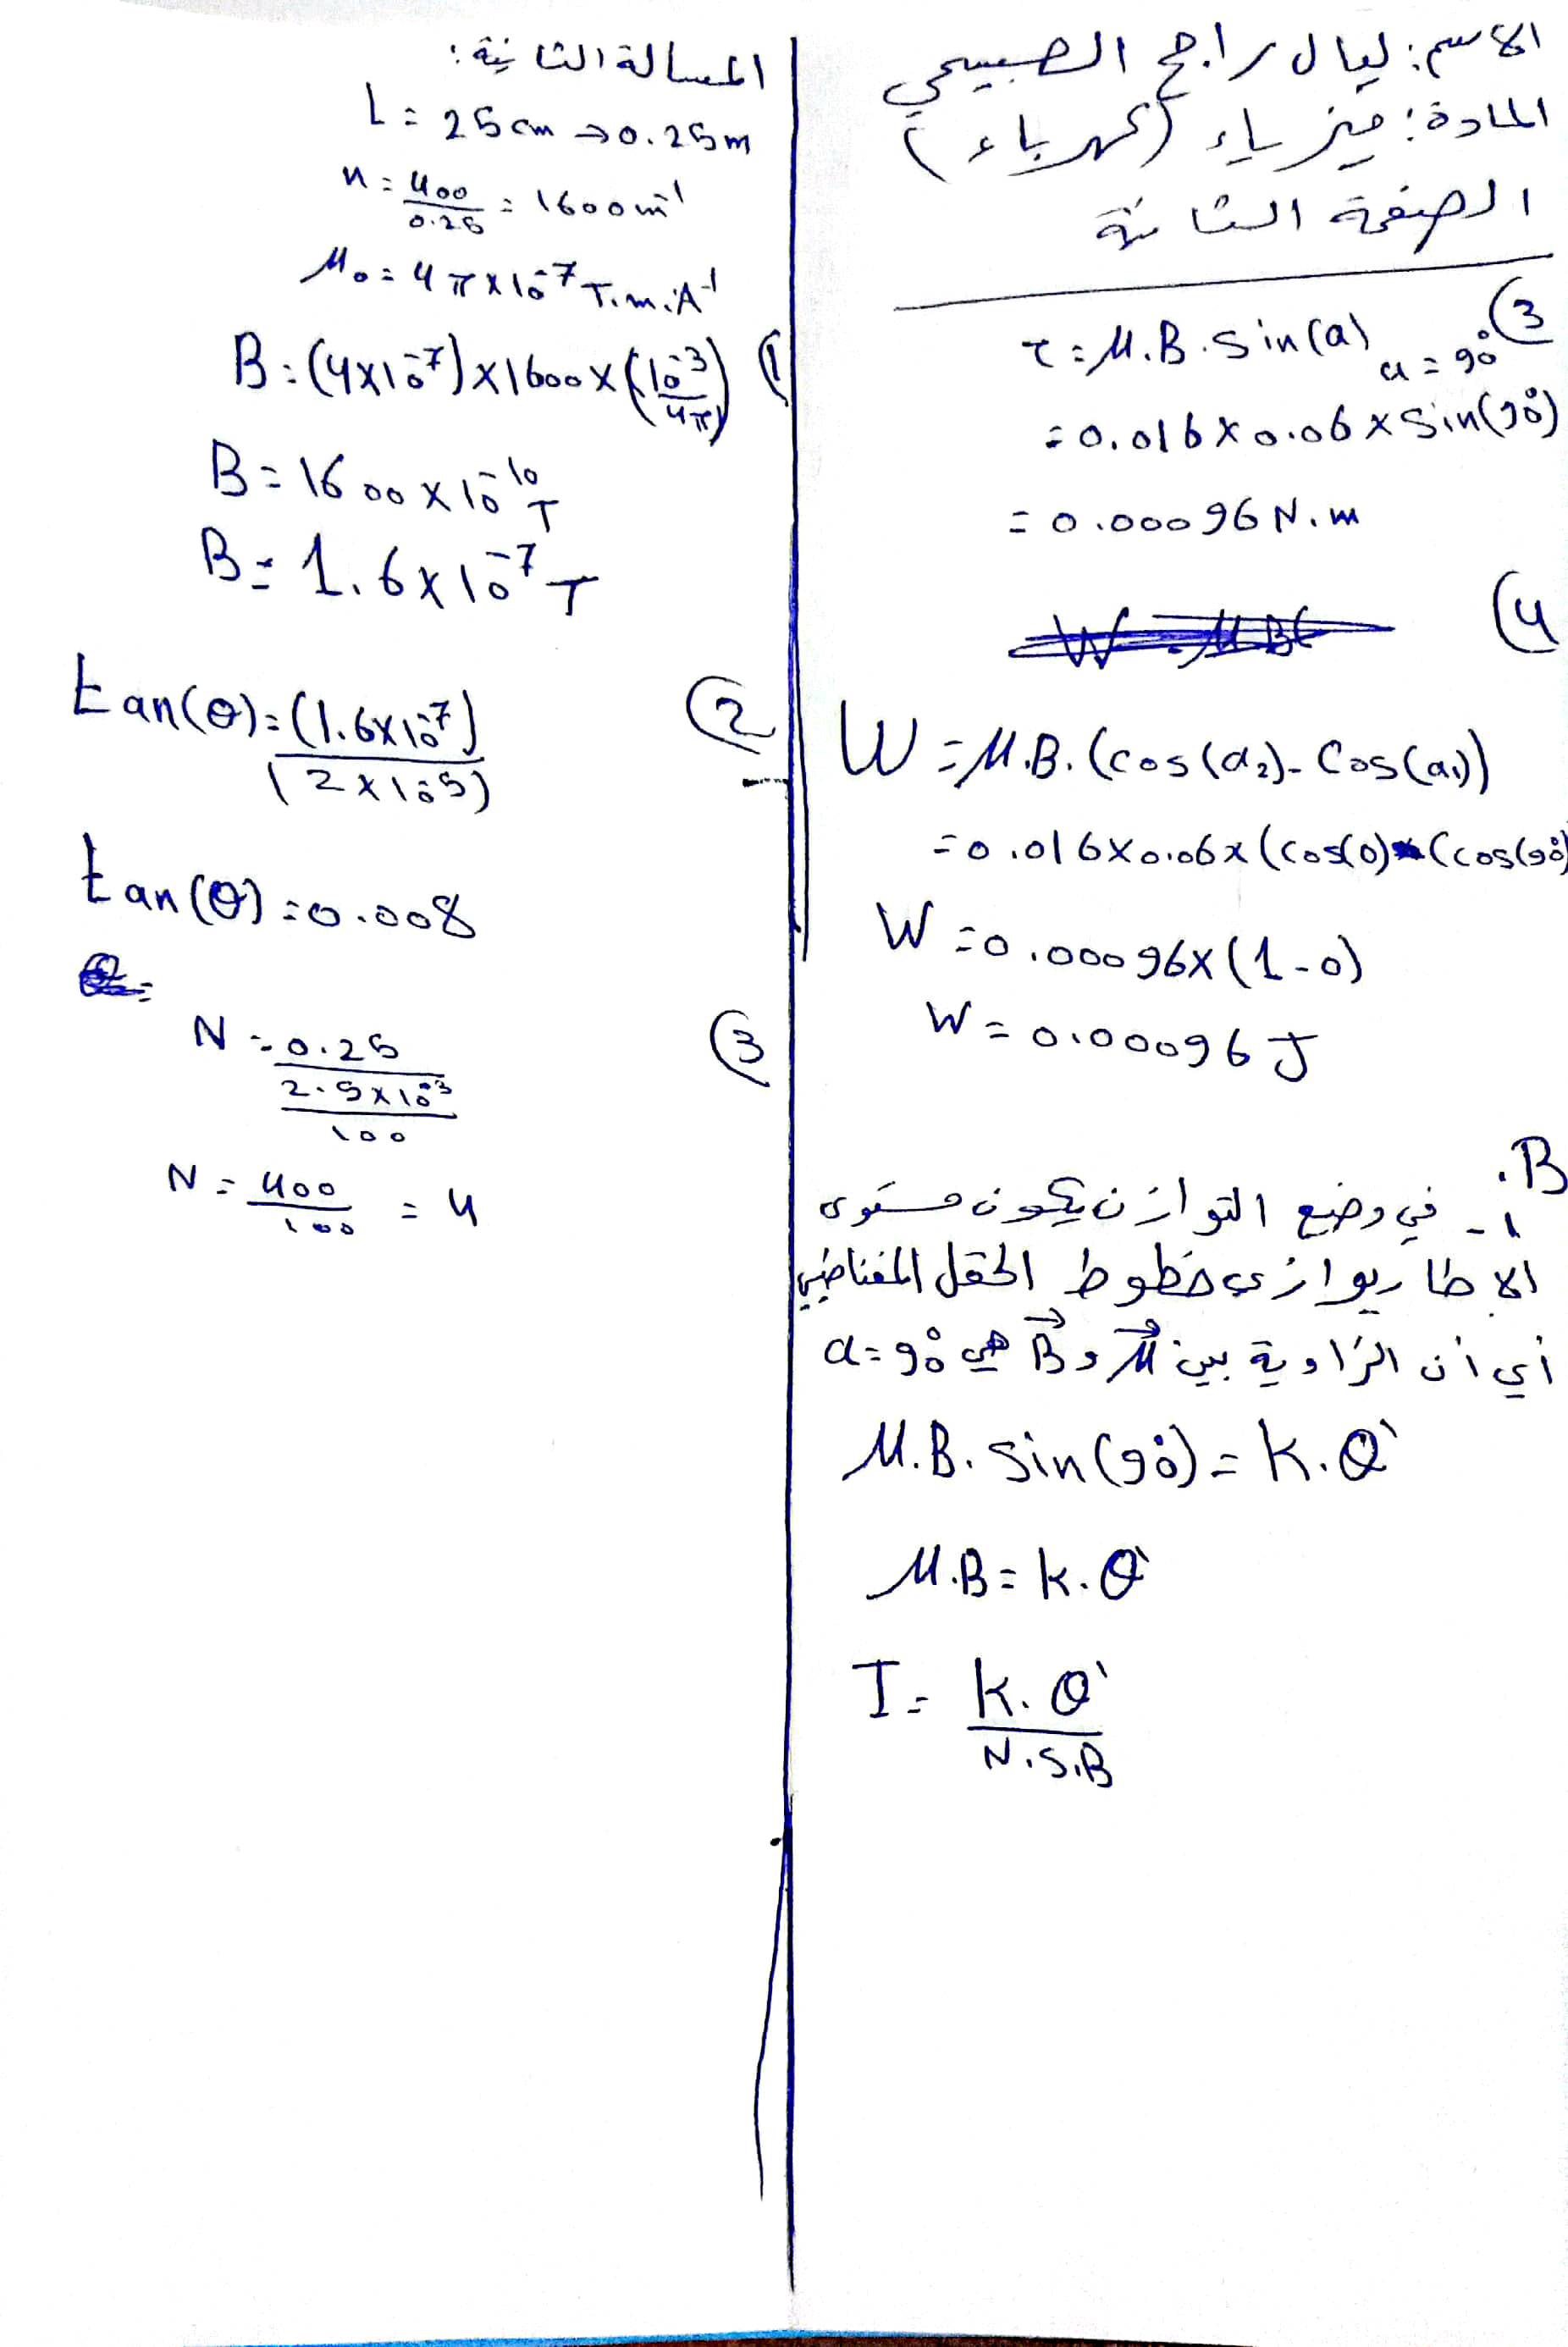 الاسم: ليال راجح الصبيحي
المادة: فيزياء (كهرباء)
الصفحة الثانية
3)
τ = M.B.sin(a) a = 90°
= 0.016 x 0.06 x sin(90°)
= 0.00096 N.m
4)
W = M.B.(cos(a₂) - cos(a₁))
= 0.016 x 0.06 x (cos(0) - (cos(90°)
W = 0.00096 x (1 - 0)
W = 0.00096 J
B.
1- في وضع التوازن يكون مستوى
الاطار يوازي خطوط الحقل المغناطيسي
أي أن الزاوية بين M⃗ و B⃗ هي a = 90°
M.B.sin(90°) = k.θ'
M.B = k.θ'
I = k.θ'
N.S.B
المسالة الثانية:
L = 25 cm → 0.25 m
n = 400/0.25 = 1600 m⁻¹
M₀ = 4π x 10⁻⁷ T.m.A⁻¹
1) B = (4 x 10⁻⁷) x 1600 x (10⁻³/4π)
B = 1600 x 10⁻¹⁰ T
B = 1.6 x 10⁻⁷ T
2) tan(θ) = (1.6 x 10⁻⁷)
(2 x 10⁻⁵)
tan(θ) = 0.008
3) N = 0.25
2.5 x 10⁻³
100
N = 400/100 = 4